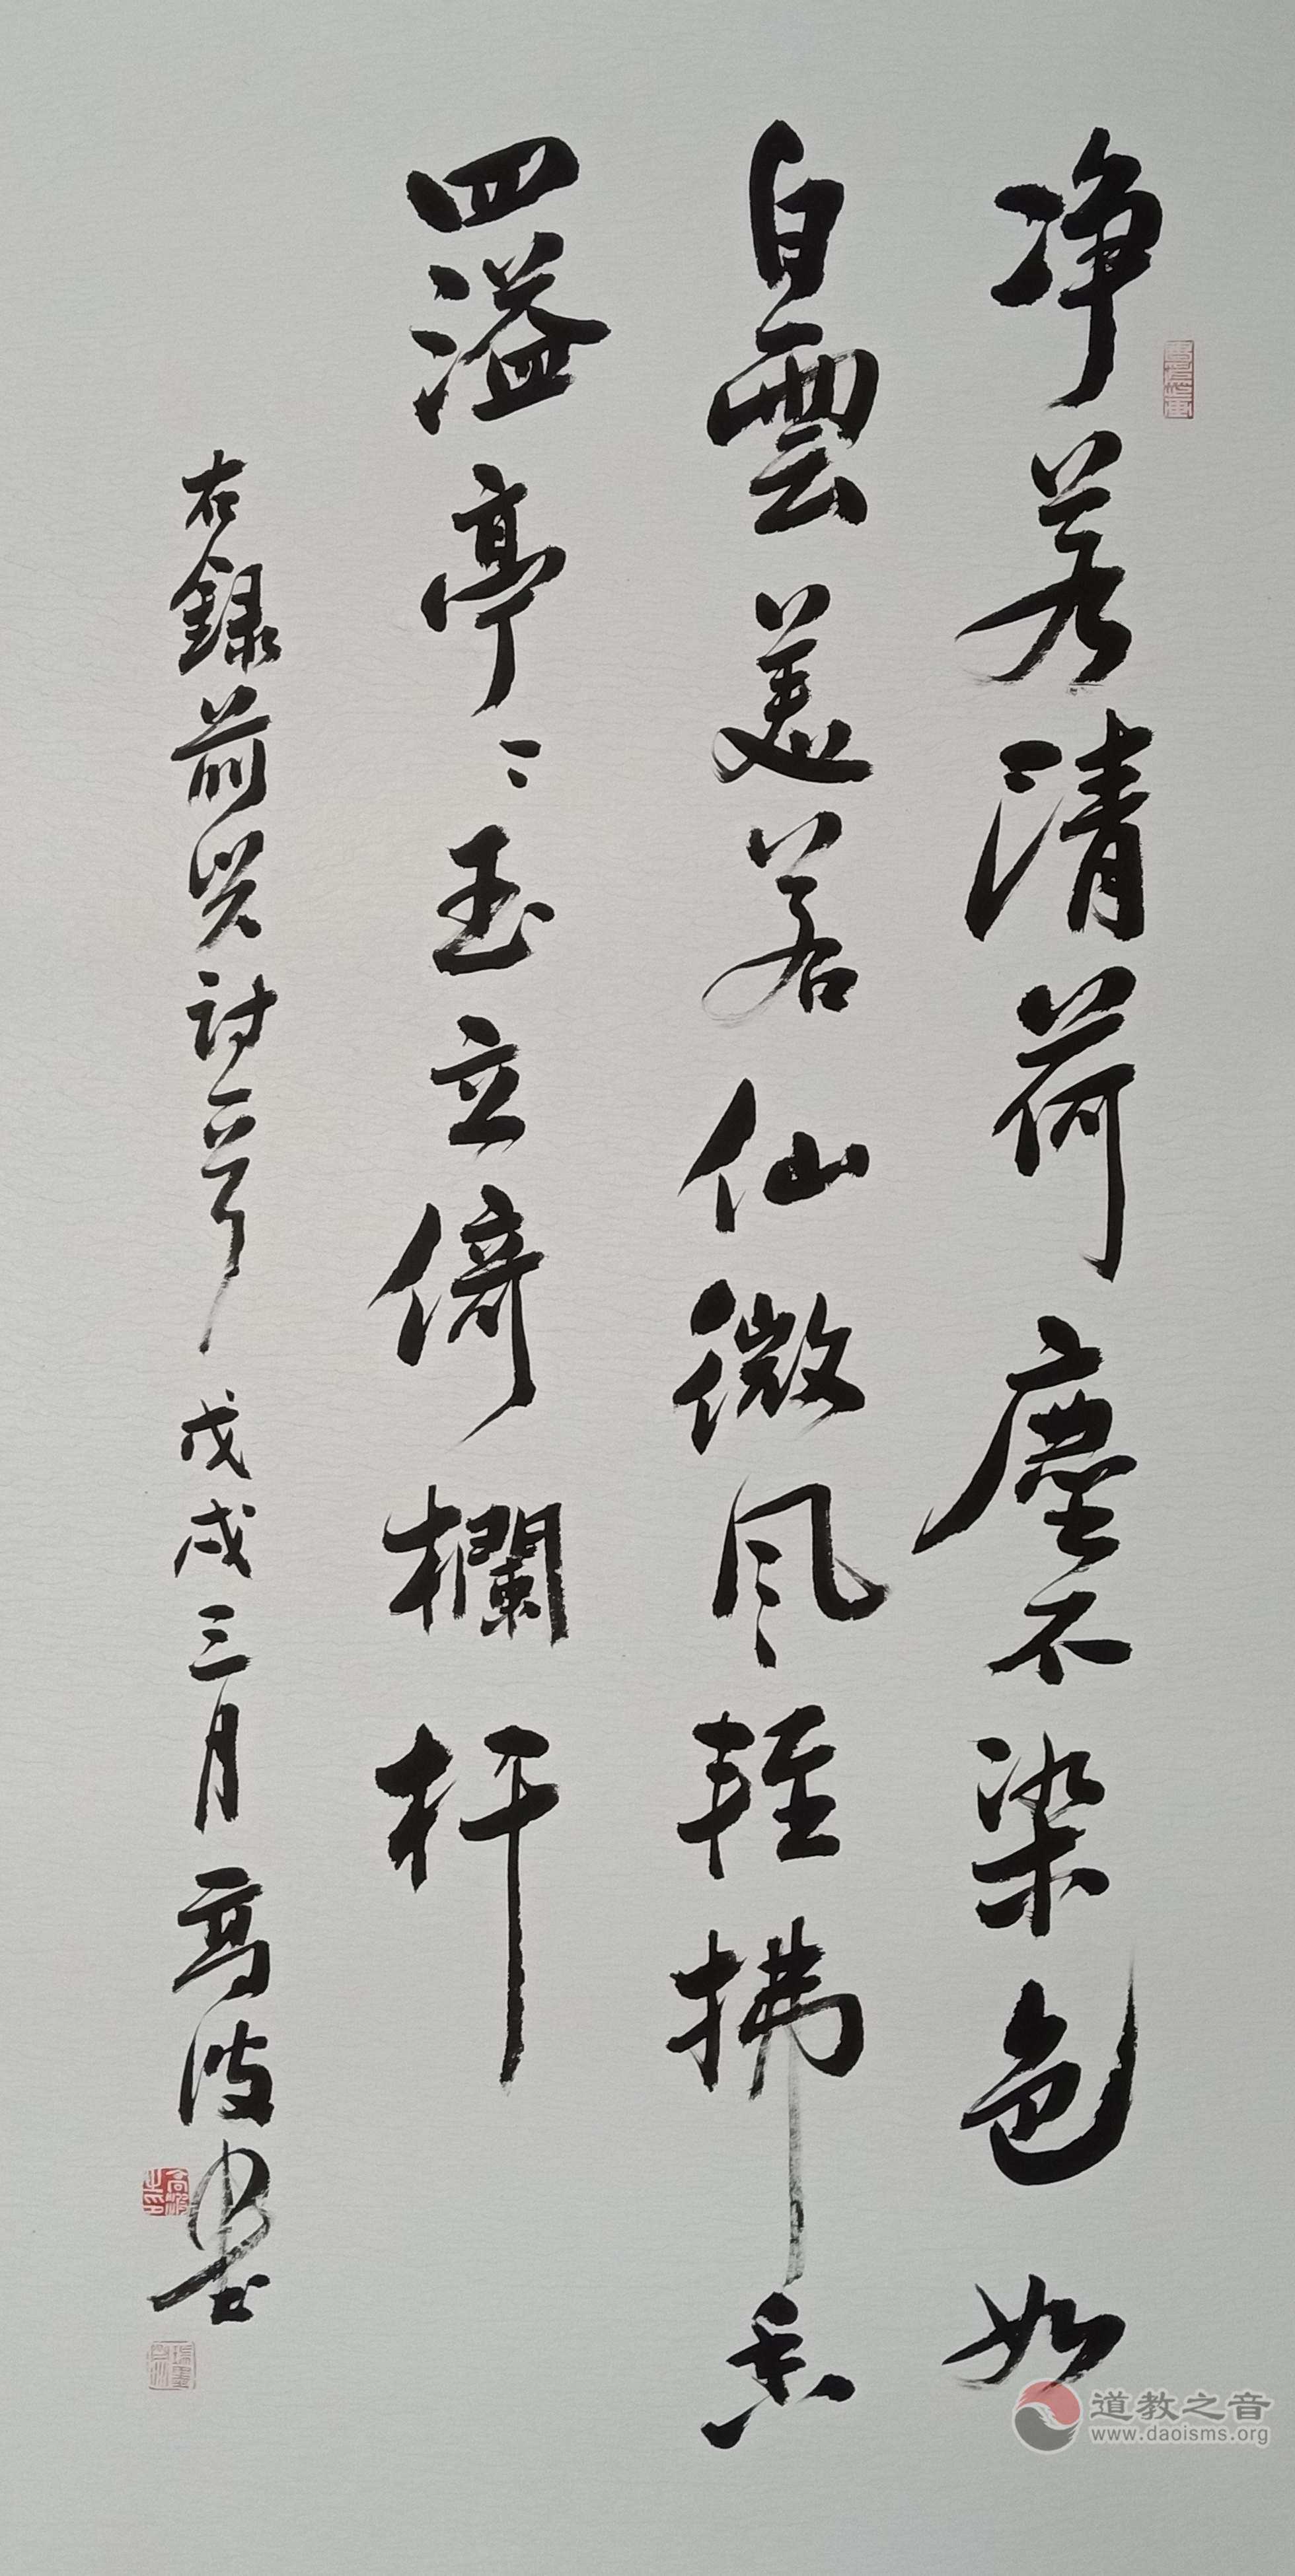 净若清荷塵不染色如
白雲美若仙微风輕拂香
四溢亭〻玉立倚欄杆
右録前賢詩一首 戊戌三月高波书
道教之音
www.daoisms.org